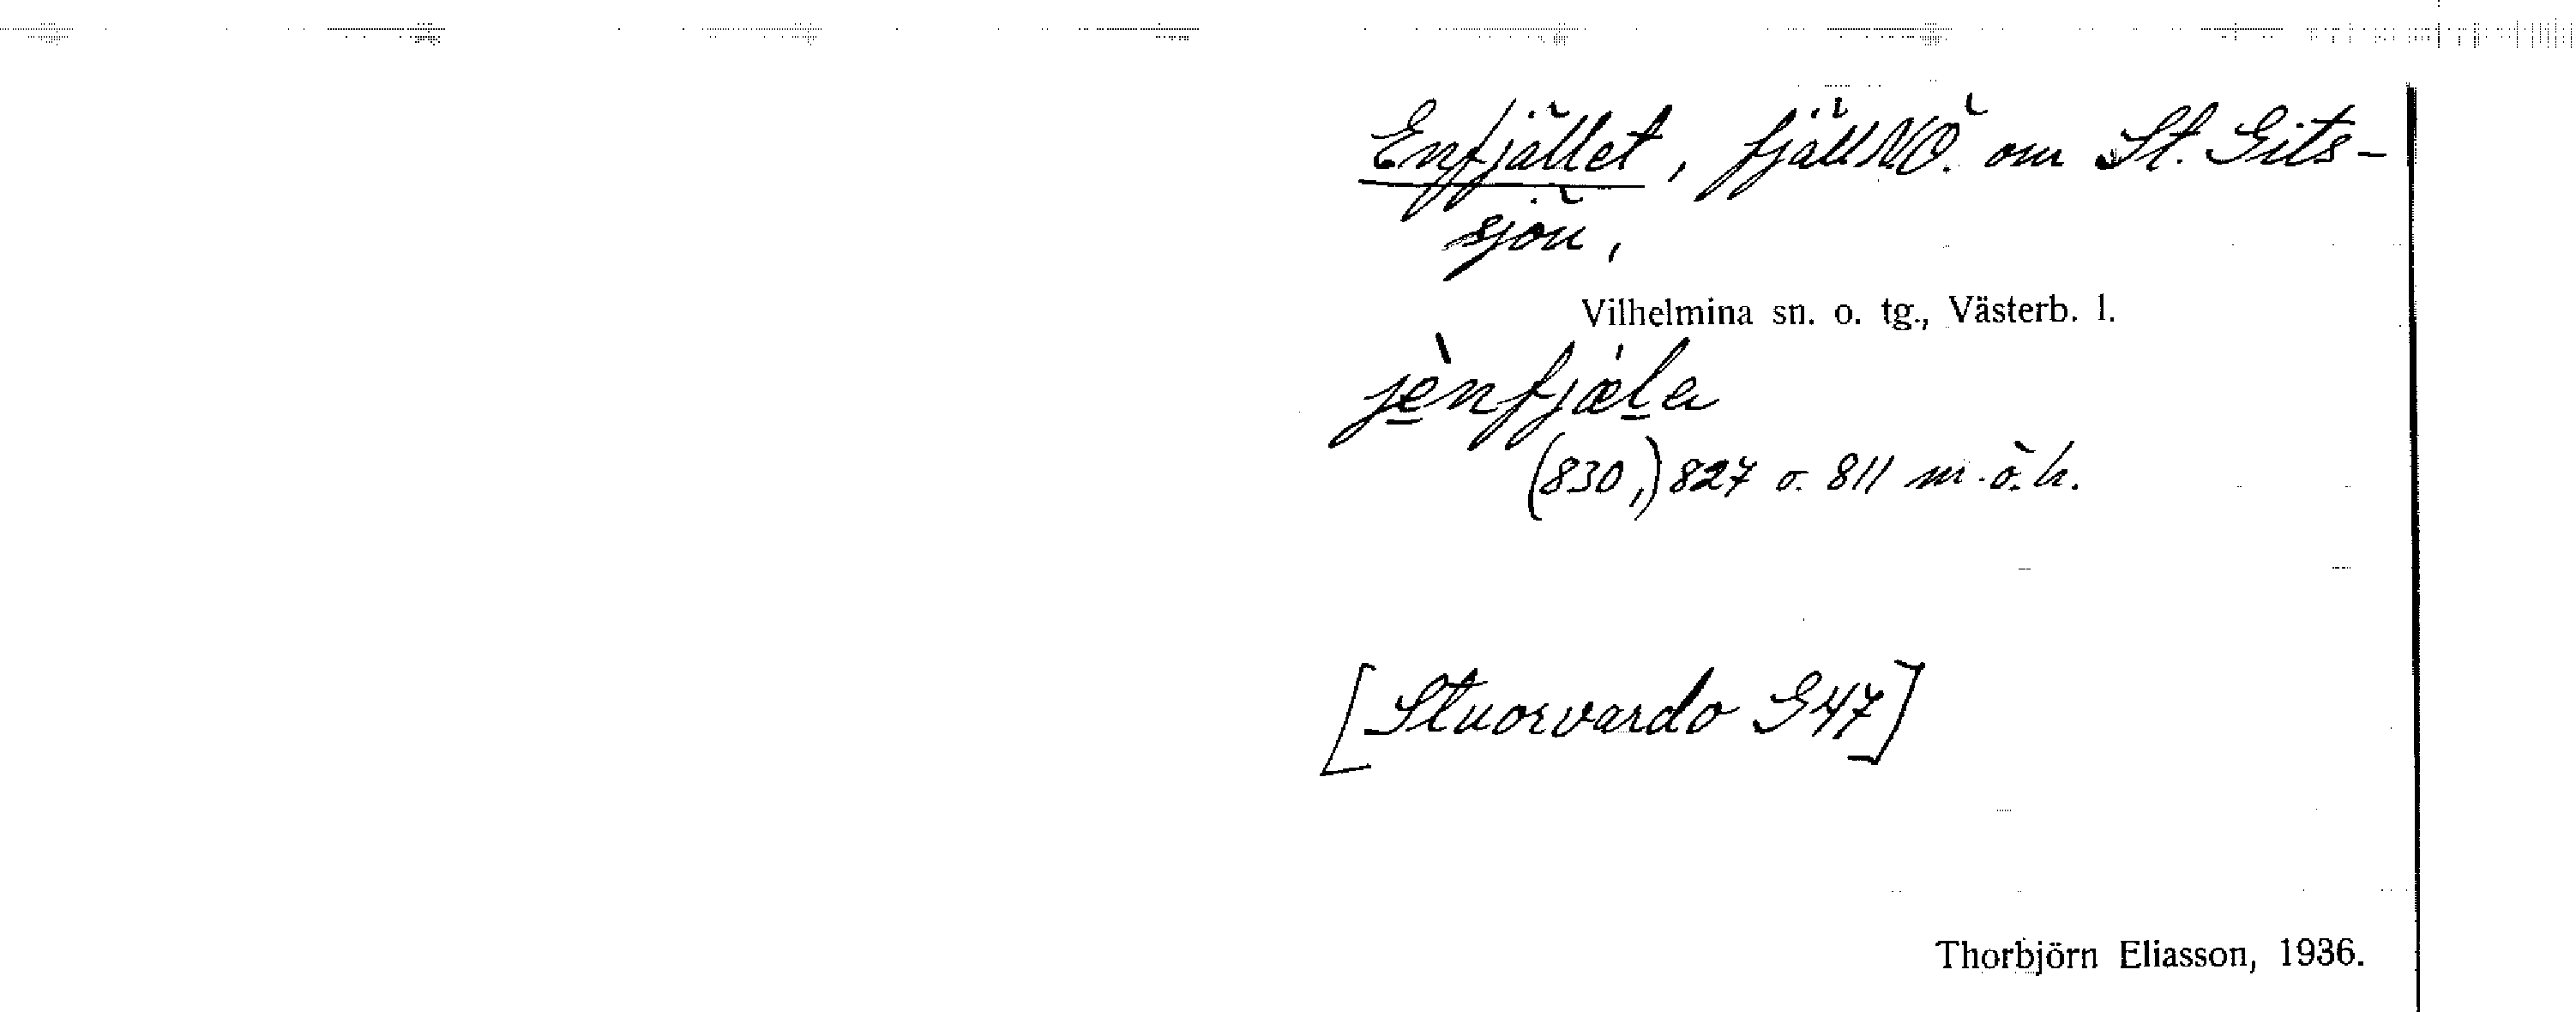 Enfjället, fjäll NÖ. om St. Gits-
sjön,
Vilhelmina sn. o. tg., Västerb. l.
jènfjæla
(830,) 827 o. 811 m.ö.h.
[Stuorvardo G47]
Thorbjörn Eliasson, 1936.